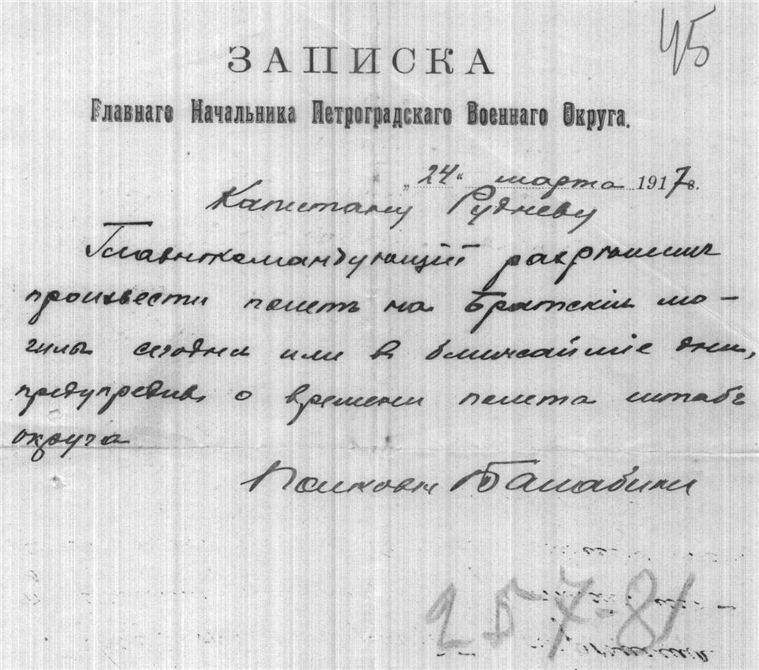 45
ЗАПИСКА
Главнаго Начальника Петроградскаго Военнаго Округа.
„24“ марта 1917 г.
Капитану Рудневу
Главнокомандующий разрешил
произвести полетъ на Братскія мо-
гилы сегодня или в ближайшіе дни,
предупредив о времени полета штабъ
округа
Полковн Балабин
257-81